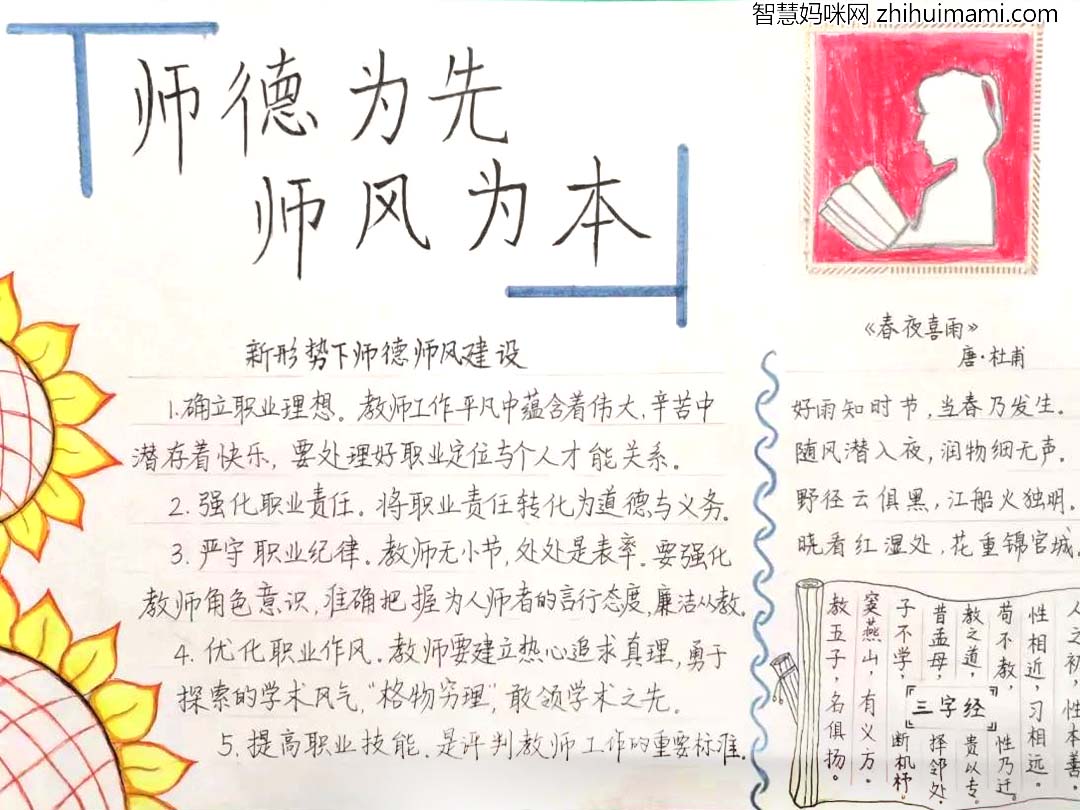 智慧妈咪网 zhihuimami.com
师德为先
师风为本
新形势下师德师风建设
1.确立职业理想。教师工作平凡中蕴含着伟大,辛苦中
潜存着快乐,要处理好职业定位与个人才能关系。
2.强化职业责任.将职业责任转化为道德与义务.
3.严守职业纪律.教师无小节,处处是表率.要强化
教师角色意识,准确把握为人师者的言行态度,廉洁从教.
4.优化职业作风.教师要建立热心追求真理,勇于
探索的学术风气,“格物穷理”,敢领学术之先.
5.提高职业技能.是评判教师工作的重要标准.
《春夜喜雨》
唐·杜甫
好雨知时节,当春乃发生.
随风潜入夜,润物细无声.
野径云俱黑,江船火独明.
晓看红湿处,花重锦官城.
人之初,性本善.
性相近,习相远.
苟不教,性乃迁.
教之道,贵以专.
昔孟母,择邻处.
子不学,断机杼.
窦燕山,有义方.
教五子,名俱扬.
『三字经』